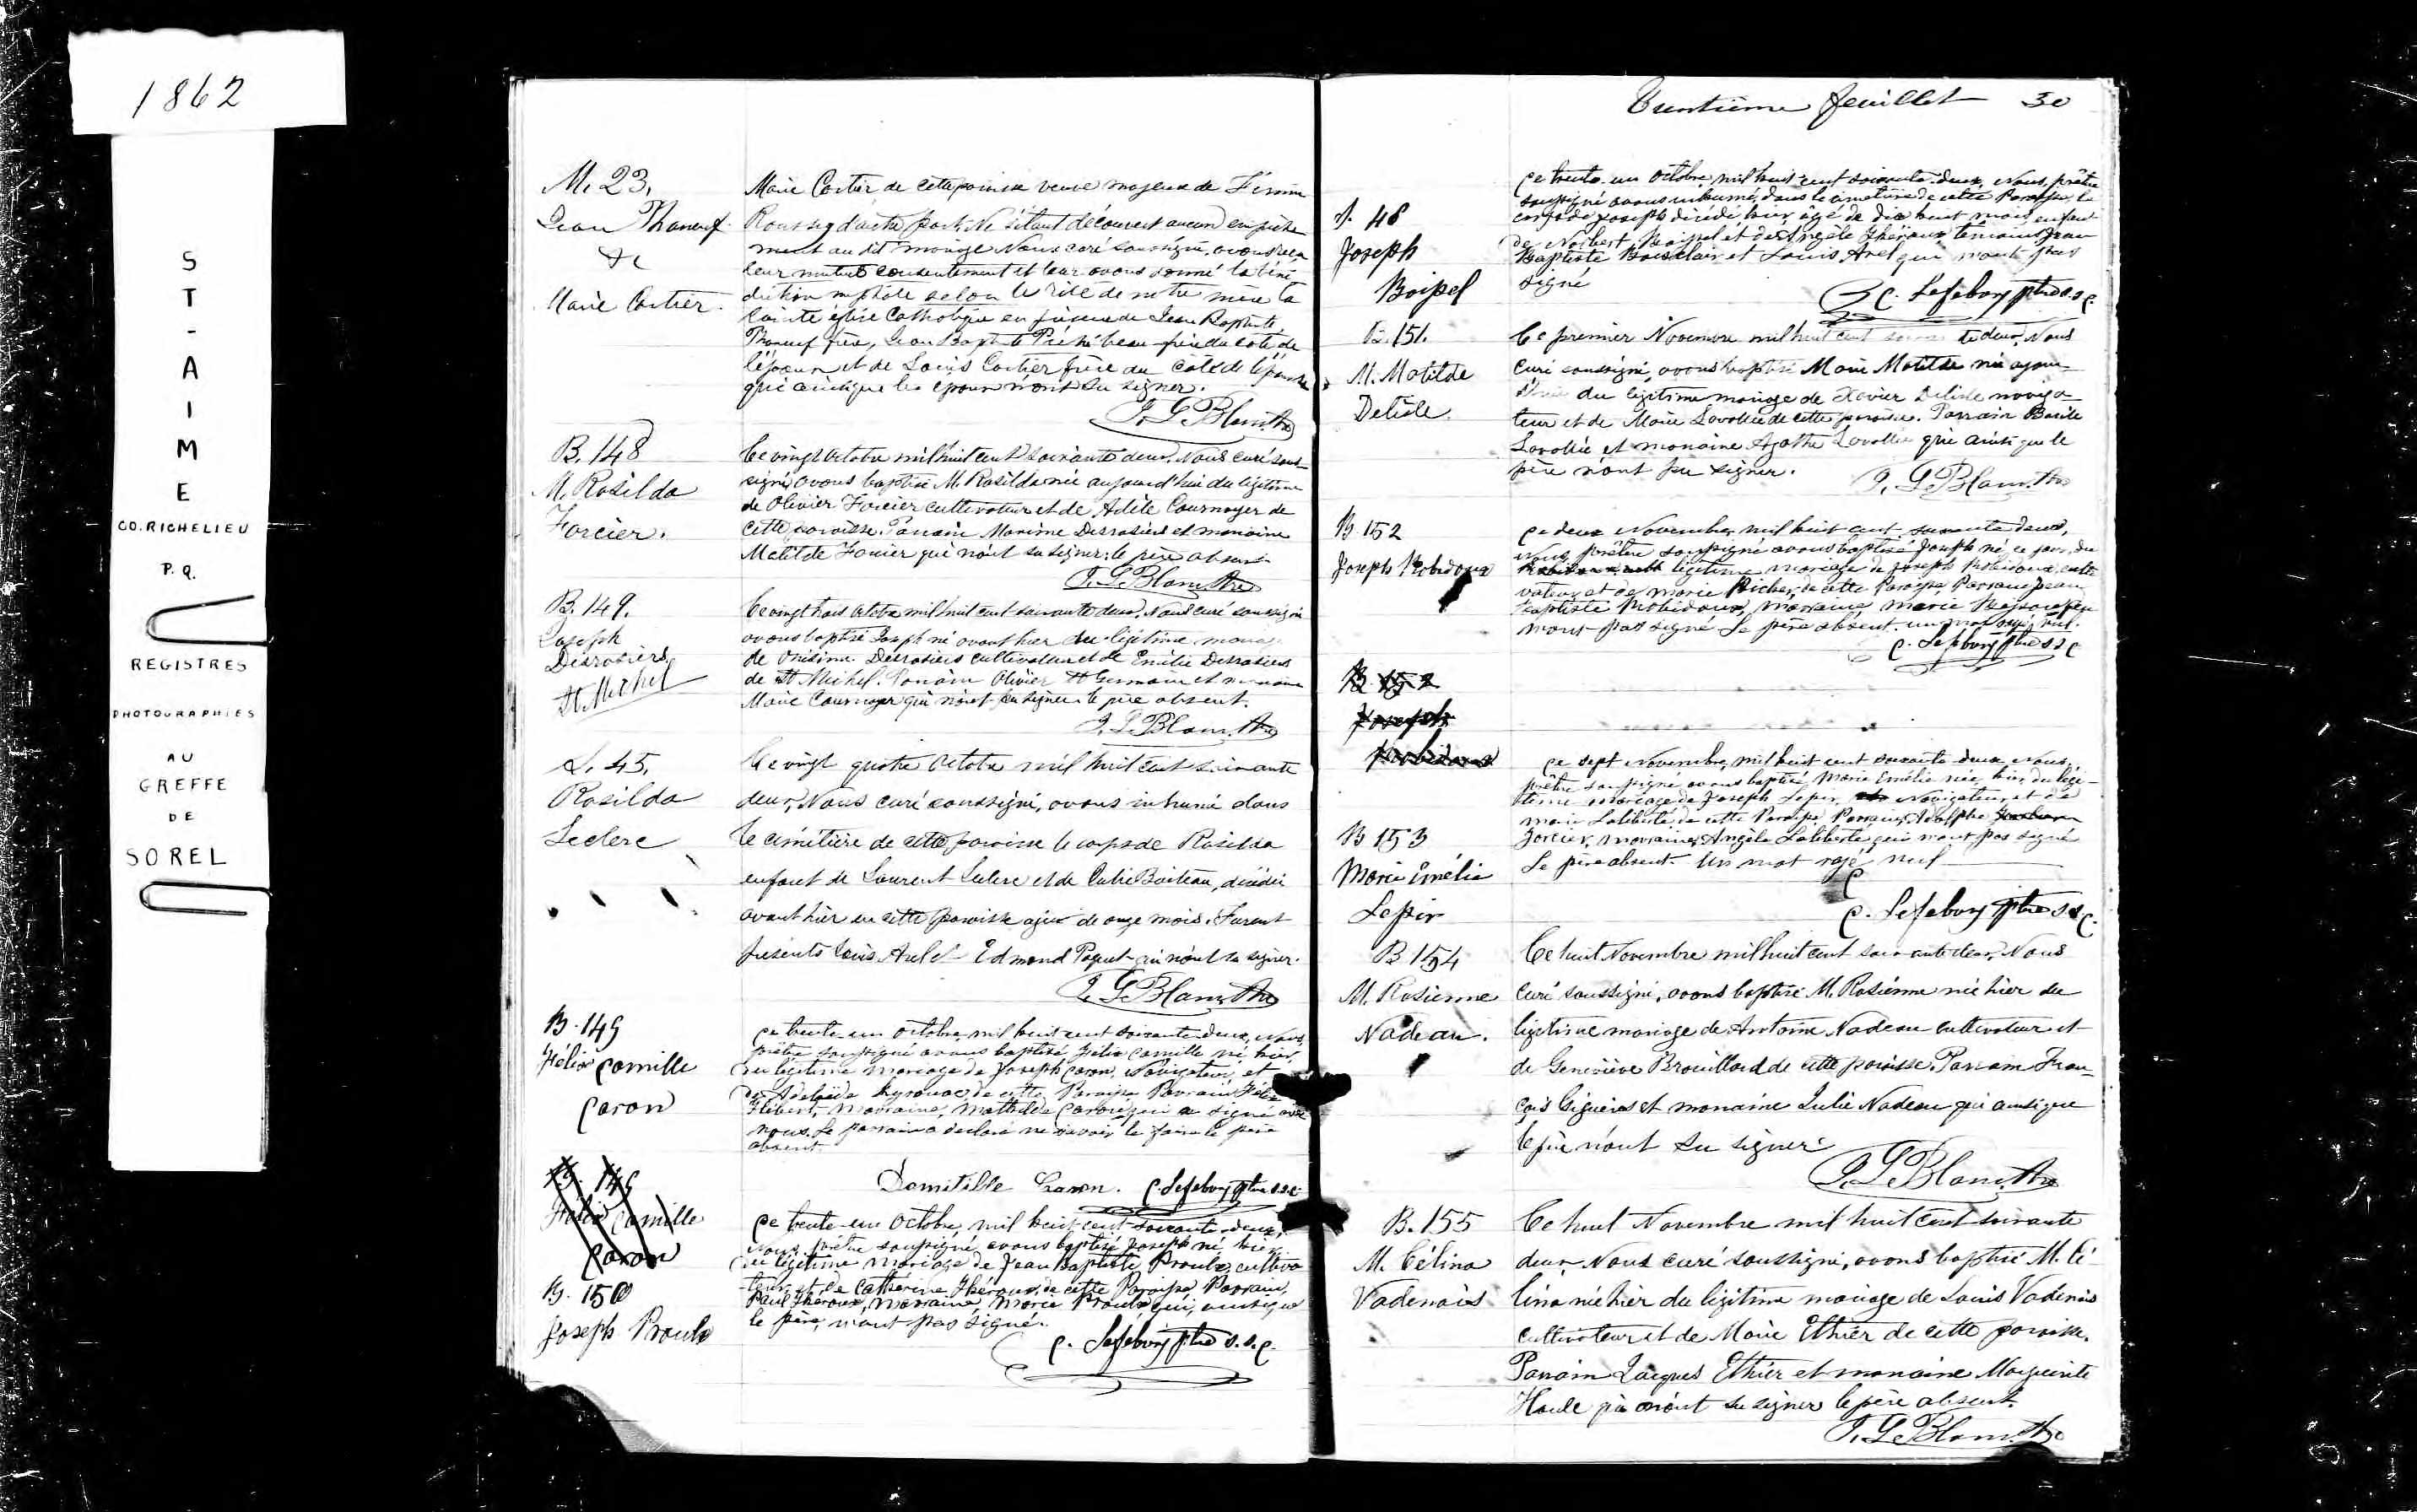 1862
S
T
-
A
I
M
E
CO. RICHELIEU
P. Q.
REGISTRES
PHOTOGRAPHIES
AU
GREFFE
DE
SOREL
M. 23.
Jean Phaneuf
&
Marie Cartier.
Marie Cartier de cette paroisse veuve majeure de Firmin
d'autre part. Ne s'étant découvert aucun empêche
ment au dit mariage Nous curé soussigné, avons reçu
leur mutuel consentement et leur avons donné la béné
diction nuptiale selon le rite de notre mère la
Sainte église Catholique en présence de Jean Baptiste
Phaneuf frère, Jean Bapt te du côté de
l'époux et de Louis Cartier frère du côté de l'épouse
qui ainsi que les époux n'ont su signer.
B. 148
M. Rosilda
Forcier.
Ce vingt Octobre mil huit cent soixante deux, Nous curé sous
signé avons baptisé M. Rosilda née aujourd'hui du légitime
de Olivier Forcier cultivateur et de Adèle Cournoyer de
cette paroisse. Parrain Maxime Desrosiers et marraine
Matilde Forcier qui n'ont su signer; le père absent.
B. 149.
Joseph
Desrosiers
St. Michel
Ce vingt trois Octobre mil huit cent soixante deux, Nous curé soussigné
avons baptisé Joseph né avant hier du légitime maria
de Onésime Desrosiers cultivateur et de Emélie Desrosiers
de St Michel. Parrain Olivier St Germain et marraine
Marie Cournoyer qui n'ont su signer. le père absent.
S. 45.
Rosilda
Leclerc
Ce vingt quatre Octobre mil huit cent soixante
deux, Nous curé soussigné, avons inhumé dans
le cimétière de cette paroisse le corps de Rosilda
enfant de Laurent Leclerc et de Julie Boiteau, décédée
avant hier en cette paroisse agée de onze mois. Furent
présents Louis Arel et Edmond Paquet qui n'ont su signer.
B. 149
Félix Camille
Caron
Ce trente un octobre, mil huit cent soixante deux, Nous,
prêtre soussigné avons baptisé Félix Camille né hier,
du légitime mariage de Joseph Caron, Navigateur, et
de Adelaïde de cette Paroisse Parrain Félix
Hébert, Marraine, Mathilde Caron qui a signé avec
nous. Le parrain a déclaré ne savoir le faire le père
absent.
Domitilde Caron. C. Lefebvre ptre s.s.c.
B. 149
Félix Camille
Caron
B. 150
Joseph Proulx
Ce trente-un Octobre, mil huit cent soixante-deux,
Nous, prêtre soussigné avons baptisé Joseph né hier,
du légitime mariage de Jean Baptiste Proulx, cultiva
teur, et de Catherine Théroux, de cette Paroisse Parrain,
Paul Théroux, Marraine, Marie Proulx qui, ainsi que
le père, n'ont pas signé.
C. Lefebvre ptre s.s.c.
Trentième feuillet 30
S. 48
Joseph
Boispel
Ce trente-un Octobre, mil huit cent soixante-deux, Nous, prêtre
soussigné avons inhumé, dans le cimetière de cette Paroisse, le
corps de Joseph décédé hier, âgé de dix huit mois enfant
de Norbert et de Angèle Théroux témoins Jean
Baptiste Boisclair et Louis Arel qui n'ont pas
signé
C. Lefebvre ptre s.s.c.
B. 151.
M. Matilde
Delisle.
Ce premier Novembre mil huit cent soixante deux, Nous
Curé soussigné, avons baptisé Marie Matilde née aujour
d'hui du légitime mariage de Xavier Delisle naviga
teur et de Marie Lavallée de cette paroisse. Parrain Basile
Lavallée et marraine Agathe Lavallée qui ainsi que le
père n'ont su signer.
B 152
Joseph Robidoux
Ce deux Novembre, mil huit cent soixante deux,
Nous, prêtre soussigné avons baptisé Joseph né ce jour, du
légitime mariage de Joseph Robidoux, culti
vateur, et de Marie Richer, de cette Paroisse, Parrain, Jean
Baptiste Robidoux, Marraine, Marie
n'ont pas signé Le père absent. un mot rayé nul.
C. Lefebvre ptre s.s.c.
B. 152
Joseph
Robidoux
B 153
Marie Emélie
Lepir
Ce sept Novembre, mil huit cent soixante deux, Nous,
prêtre soussigné avons baptisé Marie Emélie née hier, du légi-
time mariage de Joseph Lepir, Navigateur, et de
Marie Laliberté de cette Paroisse Parrain, Adolphe
Forcier, Marraine, Angèle Laliberté, qui n'ont pas signé
Le père absent. Un mot rayé nul
C. Lefebvre ptre s.s.c.
B 154
M. Rosienne
Nadeau.
Ce huit Novembre mil huit cent soixante deux, Nous
Curé soussigné, avons baptisé M. Rosienne née hier du
légitime mariage de Antoine Nadeau cultivateur et
de Geneviève Brouillard de cette paroisse. Parrain Fran
çois Giguères et marraine Julie Nadeau qui ainsi que
le père n'ont su signer.
B. 155
M. Célina
Vadenais
Ce huit Novembre mil huit cent soixante
deux, Nous curé soussigné, avons baptisé M. Cé
lina née hier du légitime mariage de Louis Vadenais
cultivateur et de Marie Ethier de cette paroisse.
Parrain Jacques Ethier et marraine Marguerite
Houle qui n'ont su signer le père absent.